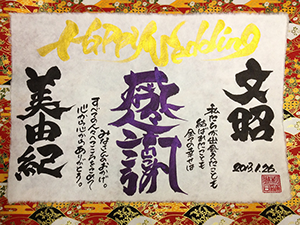 Happy Wedding
文昭
私たちが出会えたことも
結ばれたことも
全ての幸せは
感謝
みなさんのおかげ。
すべての人へこころをこめて
心から心からありがとう。
美由紀
2013.1.26